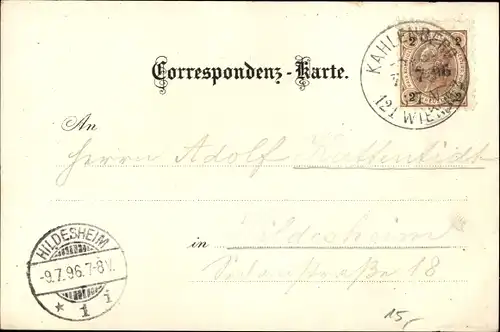 Correspondenz-Karte.
KAHLENBERG
7 96
121 WIEN
2 2
2 2
An
Herrn Adolf
in Hildesheim
18
HILDESHEIM
-9.7.96.7-8V.
* 1 i
15,-